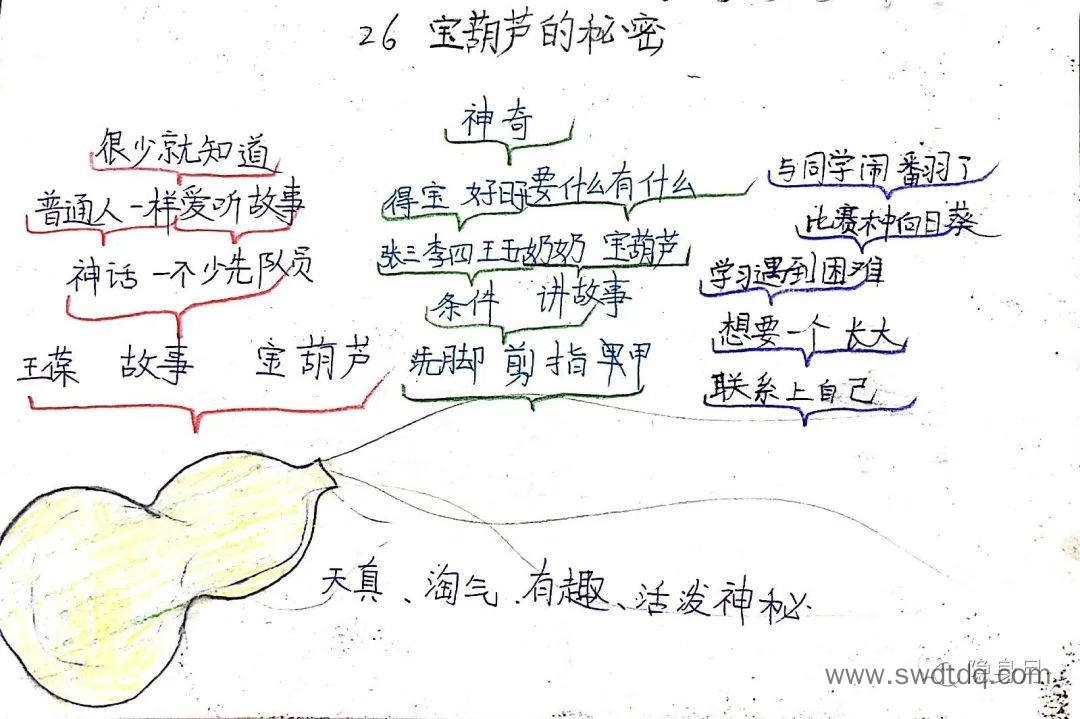 26 宝葫芦的秘密
很少就知道
普通人 一样爱听故事
神话 一个少先队员
王葆 故事 宝葫芦
神奇
得宝 好日子 要什么有什么
张三李四王五奶奶 宝葫芦
条件 讲故事
洗脚 剪指甲
与同学闹翻了
比赛种向日葵
学习遇到困难
想要一个 长大
联系上自己
天真、淘气、有趣、活泼神秘.
www.swdtdq.com